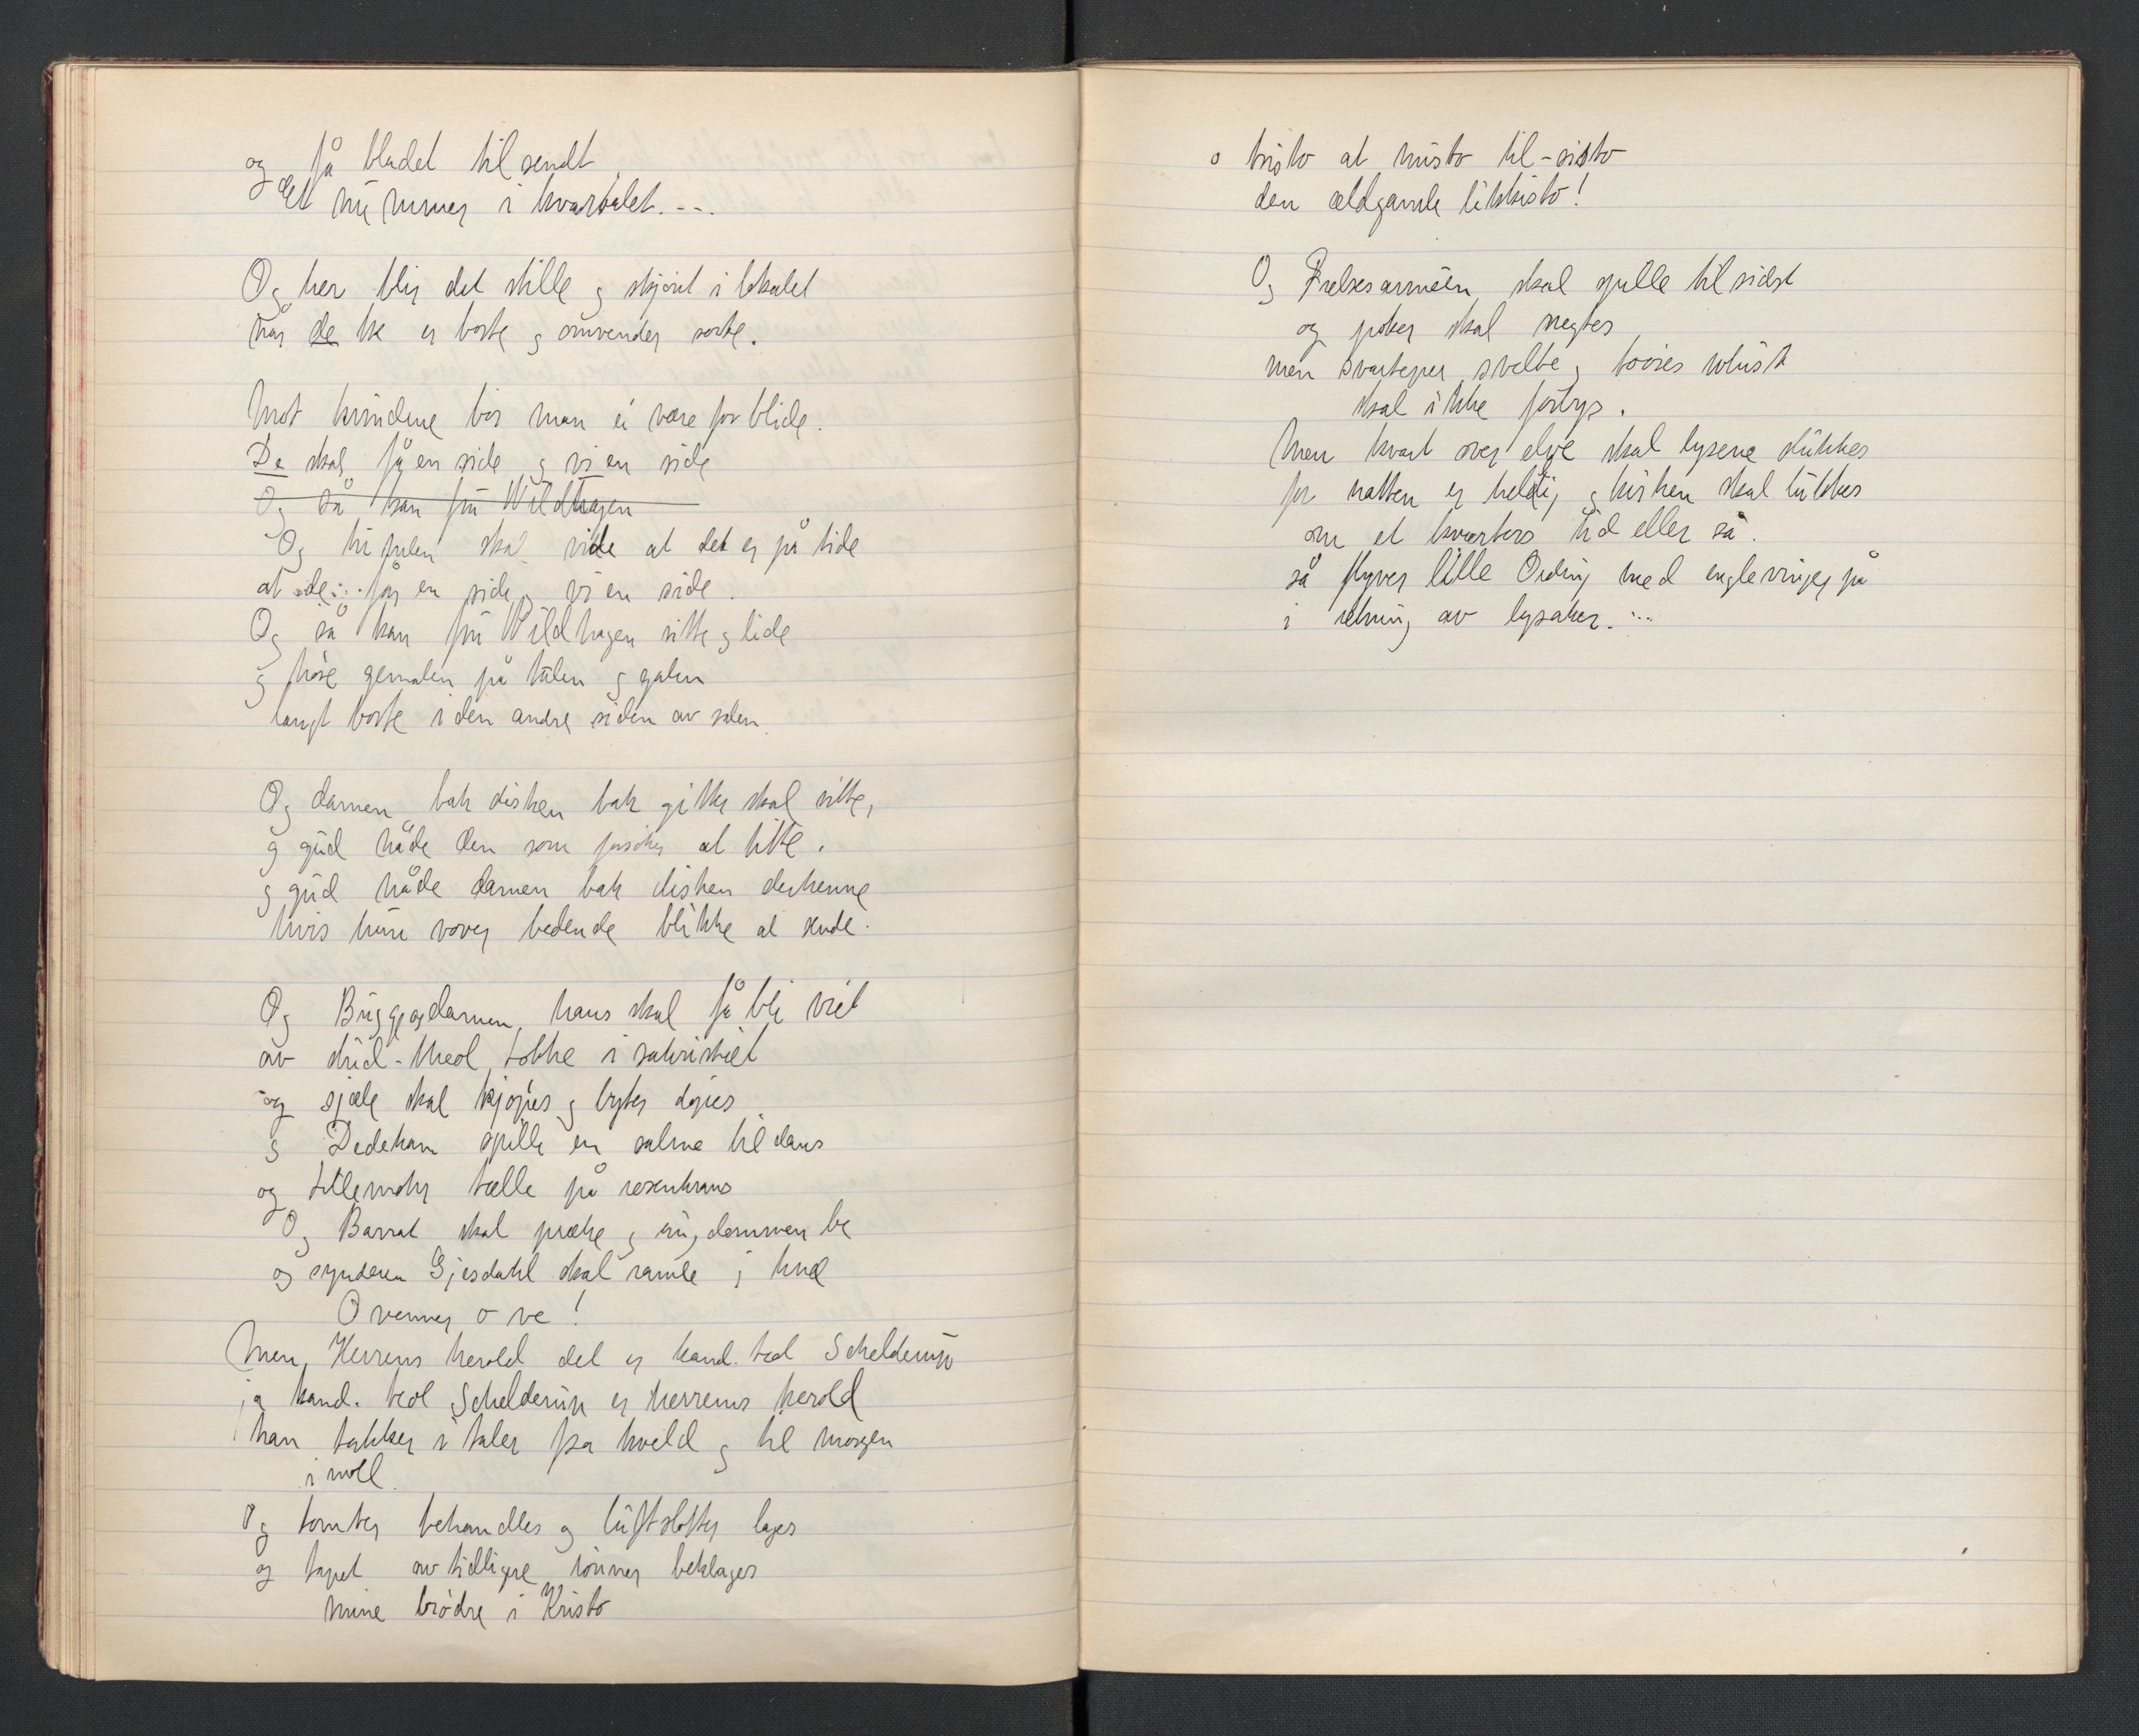 og få bladet tilsendt
et nummer i kvartalet. - -.
Og her blir det stille og skjønt i lokalet
når de tre er borte og omvender sorte.
Mot kvindene bør man ei være for blide.
De skal få en side og vi en side
Og så kan fru Wildhagen
Og skal vite at det er på tide
at de får en side og vi en side.
Og så kan fru Wildhagen sitte og lide
og høre gemalen på talen og galen
langt borte i den andre siden av salen.
Og damen bak disken bak gitter skal sitte,
og gud nåde den som forsøker at titte.
og gud nåde damen bak disken derhenne
hvis hun vover bedende blikke at sende.
Og Buggedamen, hans skal få bli viet
av stud-theol. Lokke i sakristiet
og sjæle skal kjøpes og lyter døpes
og Dedekam spille en salme til dans
og tillemohr tælle på rosenkrans
Og Barrat skal præke og ungdommen be
og synderen Gjesdahl skal ramle i knæ
O venner o ve!
Men, Herrens herold det er kand. teol Schelderup
ja kand. teol Schelderup er herrens herold
han takker i taler fra kveld og til morgen
i moll.
Og tomter behandles og luftslotter lages
og tapet av tidligere sønner beklages
mine brødre i Kristo
o tristo at misto til-sisto
den ældgamle likkisto!
Og Frelsesarmeen skal spille til sidst
og poker skal negtes
men svarteper, svelte og tooies whist
skal ikke forbys.
Men kvart over elve skal lysene slukkes
for natten er heldig og kirken skal lukkes
om et kvarters tid eller så.
så flyver lille Ording med englevinger på
i retning av lysaker. ...